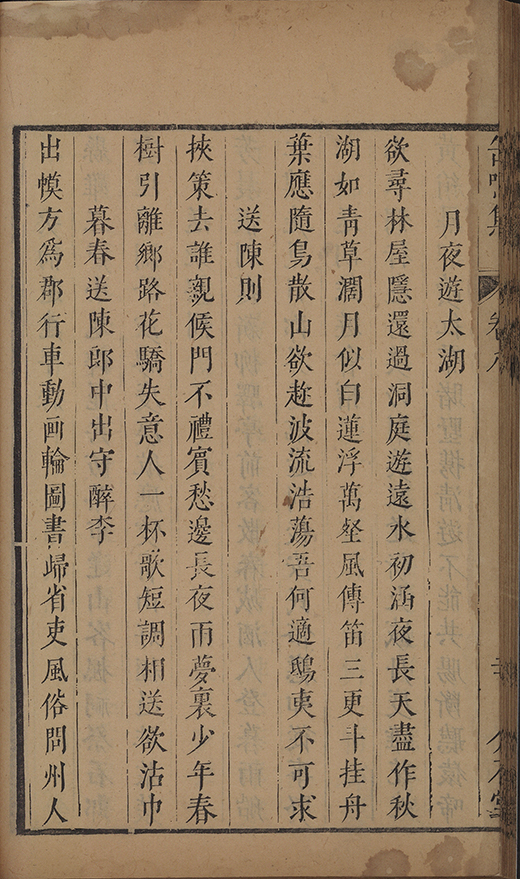 月夜遊太湖
欲尋林屋隱還過洞庭遊遠水初涵夜長天盡作秋
湖如青草濶月似白蓮浮萬壑風傳笛三更斗挂舟
葉應隨鳥散山欲趂波流浩蕩吾何適鴟夷不可求
送陳則
挾策去誰親候門不禮賓愁邊長夜雨夢裏少年春
樹引離鄉路花驕失意人一杯歌短調相送欲沾巾
暮春送陳郎中出守醉李
出幙方爲郡行車動画輪圖書歸省吏風俗問州人